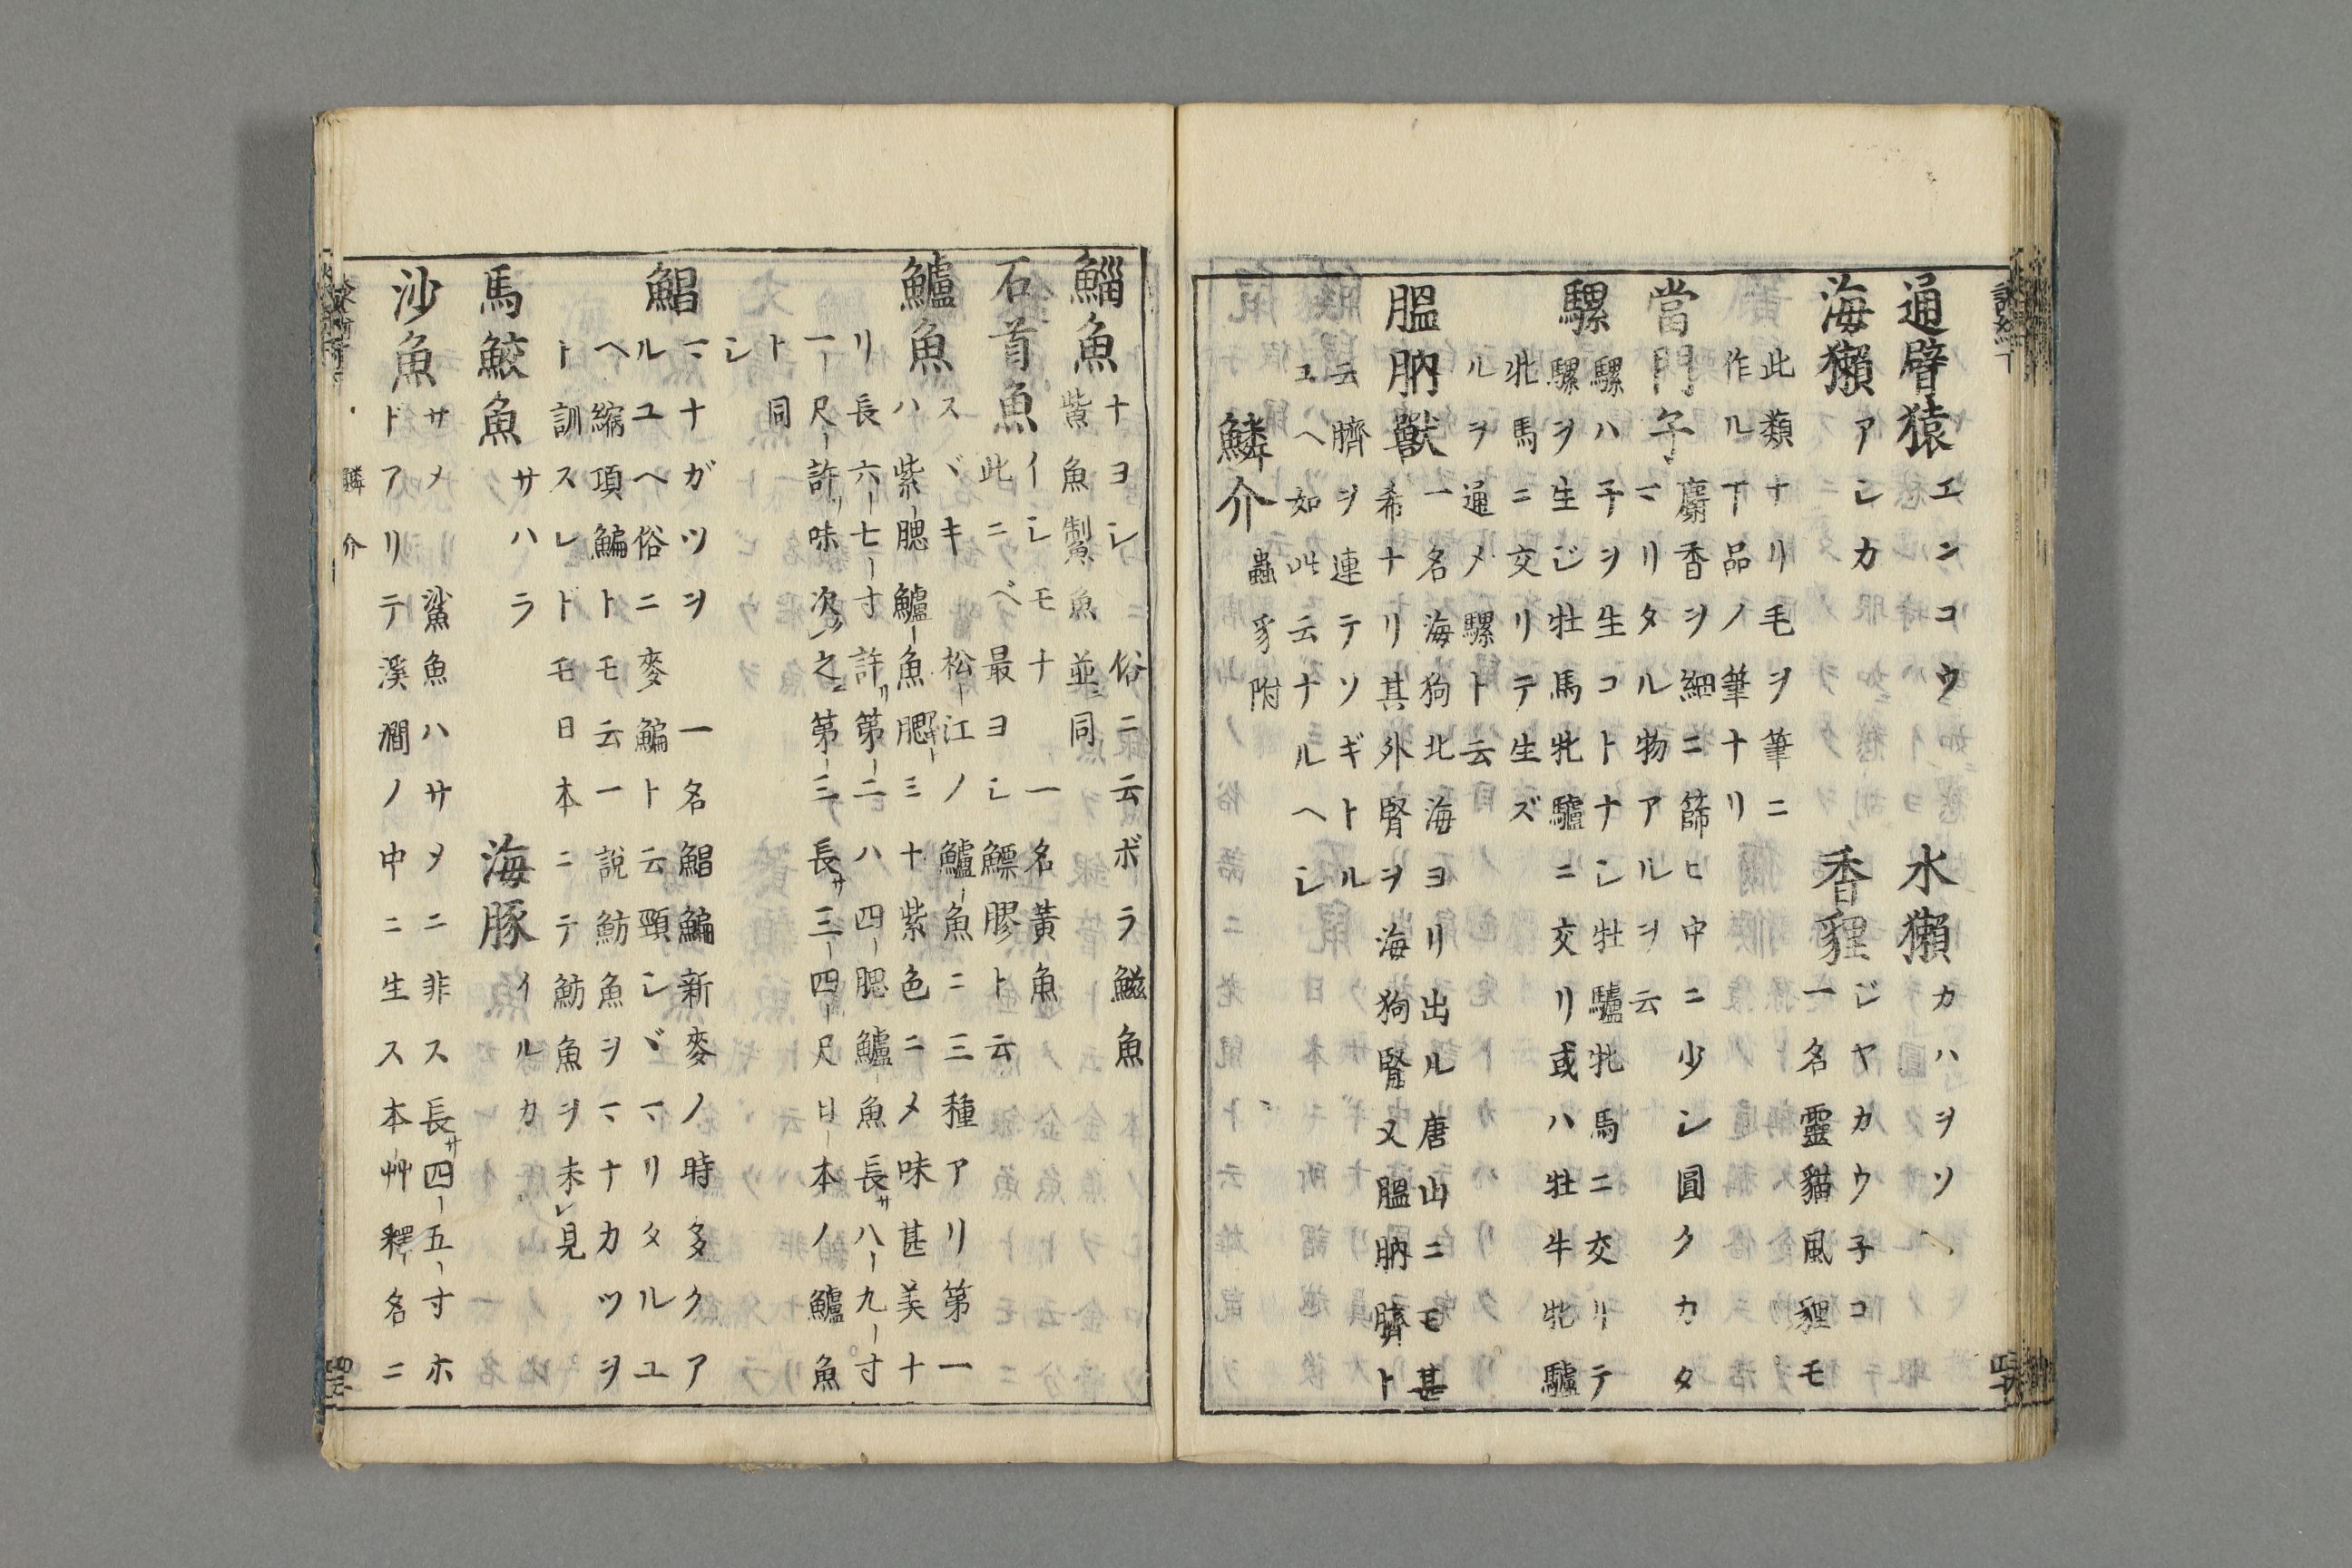 通臂猿 エンコウ 水獺 カハヲソ
海獺 アシカ 香貍 ジヤカウ子コ
一名靈貓風貍モ
此類ナリ毛ヲ筆ニ
作ル下品ノ筆ナリ
當門子 麝香ヲ細ニ篩ヒ中ニ少シ圓クカタ
マリタル物アルヲ云
騾 騾ハ子ヲ生コトナシ牡驢牝馬ニ交リテ
騾ヲ生ジ牡馬牝驢ニ交リ或ハ牡牛牝驢
牝馬ニ交リテ生ズ
ルヲ通メ騾ト云
膃肭獸 一名海狗北海ヨリ出ル唐山ニモ甚
希ナリ其外腎ヲ海狗腎又膃肭臍ト
云臍ヲ連テソギトル
ユヘ如此云ナルヘシ
鱗介 蟲豸附
鯔魚 ナヨシ俗ニ云ボラ鰦魚
鮆魚 魚並ニ同
石首魚 イシモナ 一名黃魚
此ニベ最ヨシ鰾膠ト云
鱸魚 スヾキ 松江ノ鱸魚ニ三種アリ第一
ハ紫腮鱸魚腮ミナ紫色ニメ味甚美ナ
リ長六七寸許リ第二ハ四腮鱸魚長サ八九寸
一尺許リ味次之ニ第三長サ三四尺日本ノ鱸魚
ト同
シ
鯧 マナガツヲ 一名鯧鯿新麥ノ時多クア
ルユヘ俗ニ麥鯿ト云頸シヾマリタルユ
ヘ縮項鯿トモ云一說魴魚ヲマナカツヲ
ト訓スレトモ日本ニテ魴魚ヲ未レ見
馬鮫魚 サハラ 海豚 イルカ
沙魚 サメ 鯊魚ハサメニ非ス長サ四五寸ホ
ドアリテ溪澗ノ中ニ生ス本艸釋名ニ
鱗介